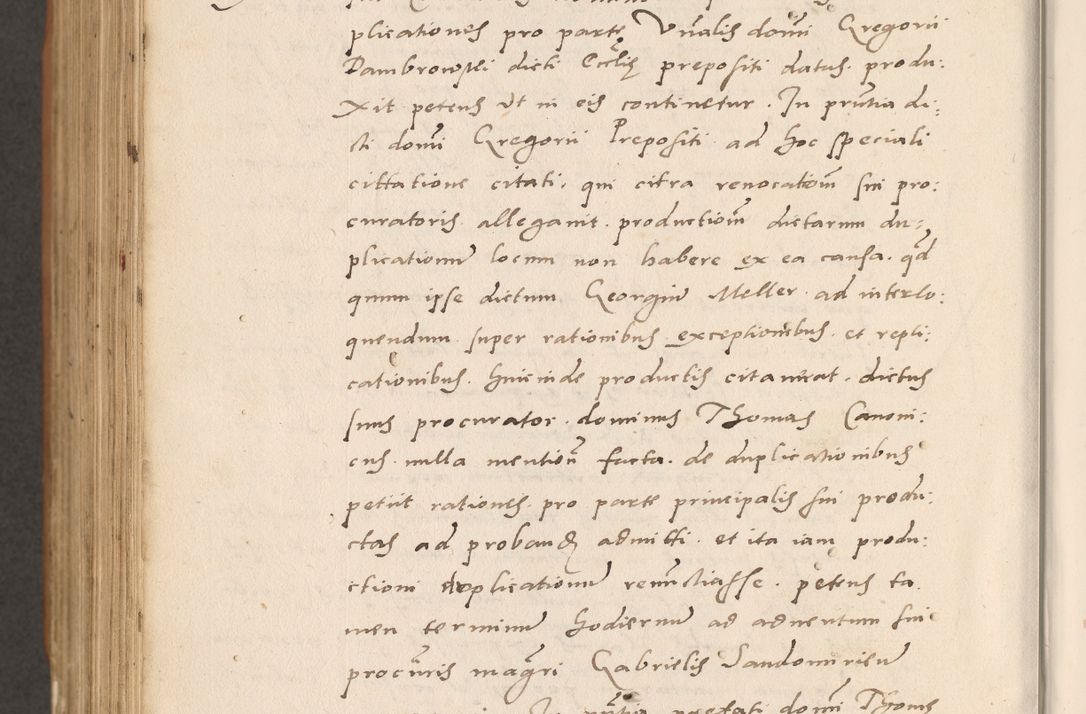 plicationes pro parte Vnalis domi Gregorii
Dambrowski dicti Eccliȩ prepositi datus produ:
xit petens vt in eis continetur. In pntia di:
cti domi Gregorii Prepositi ad hoc speciali
cittatione citati, qui citra reuocatiom sui pro:
curatoris allegauit productiom dictarum du:
plicationum locum non habere ex ea causa. qd
quum ipse dictum Georgium Meller ad interlo:
quendum super rationibus exceptionibus et repli:
cationibus hincinde productis citauerat. dictus
suus procurator dominus Thomas Canoni:
cus nulla mention facta de duplicationibus
petiit rationes pro parte principalis sui produ:
ctas ad proband admitti. et ita iam produ:
ctioni duplicationum renuctiasse. petens ta
men terminum hodiernum ad aduentum sui
procuris magri Gabrielis Sandomirien
In pntia prefati domi Thome